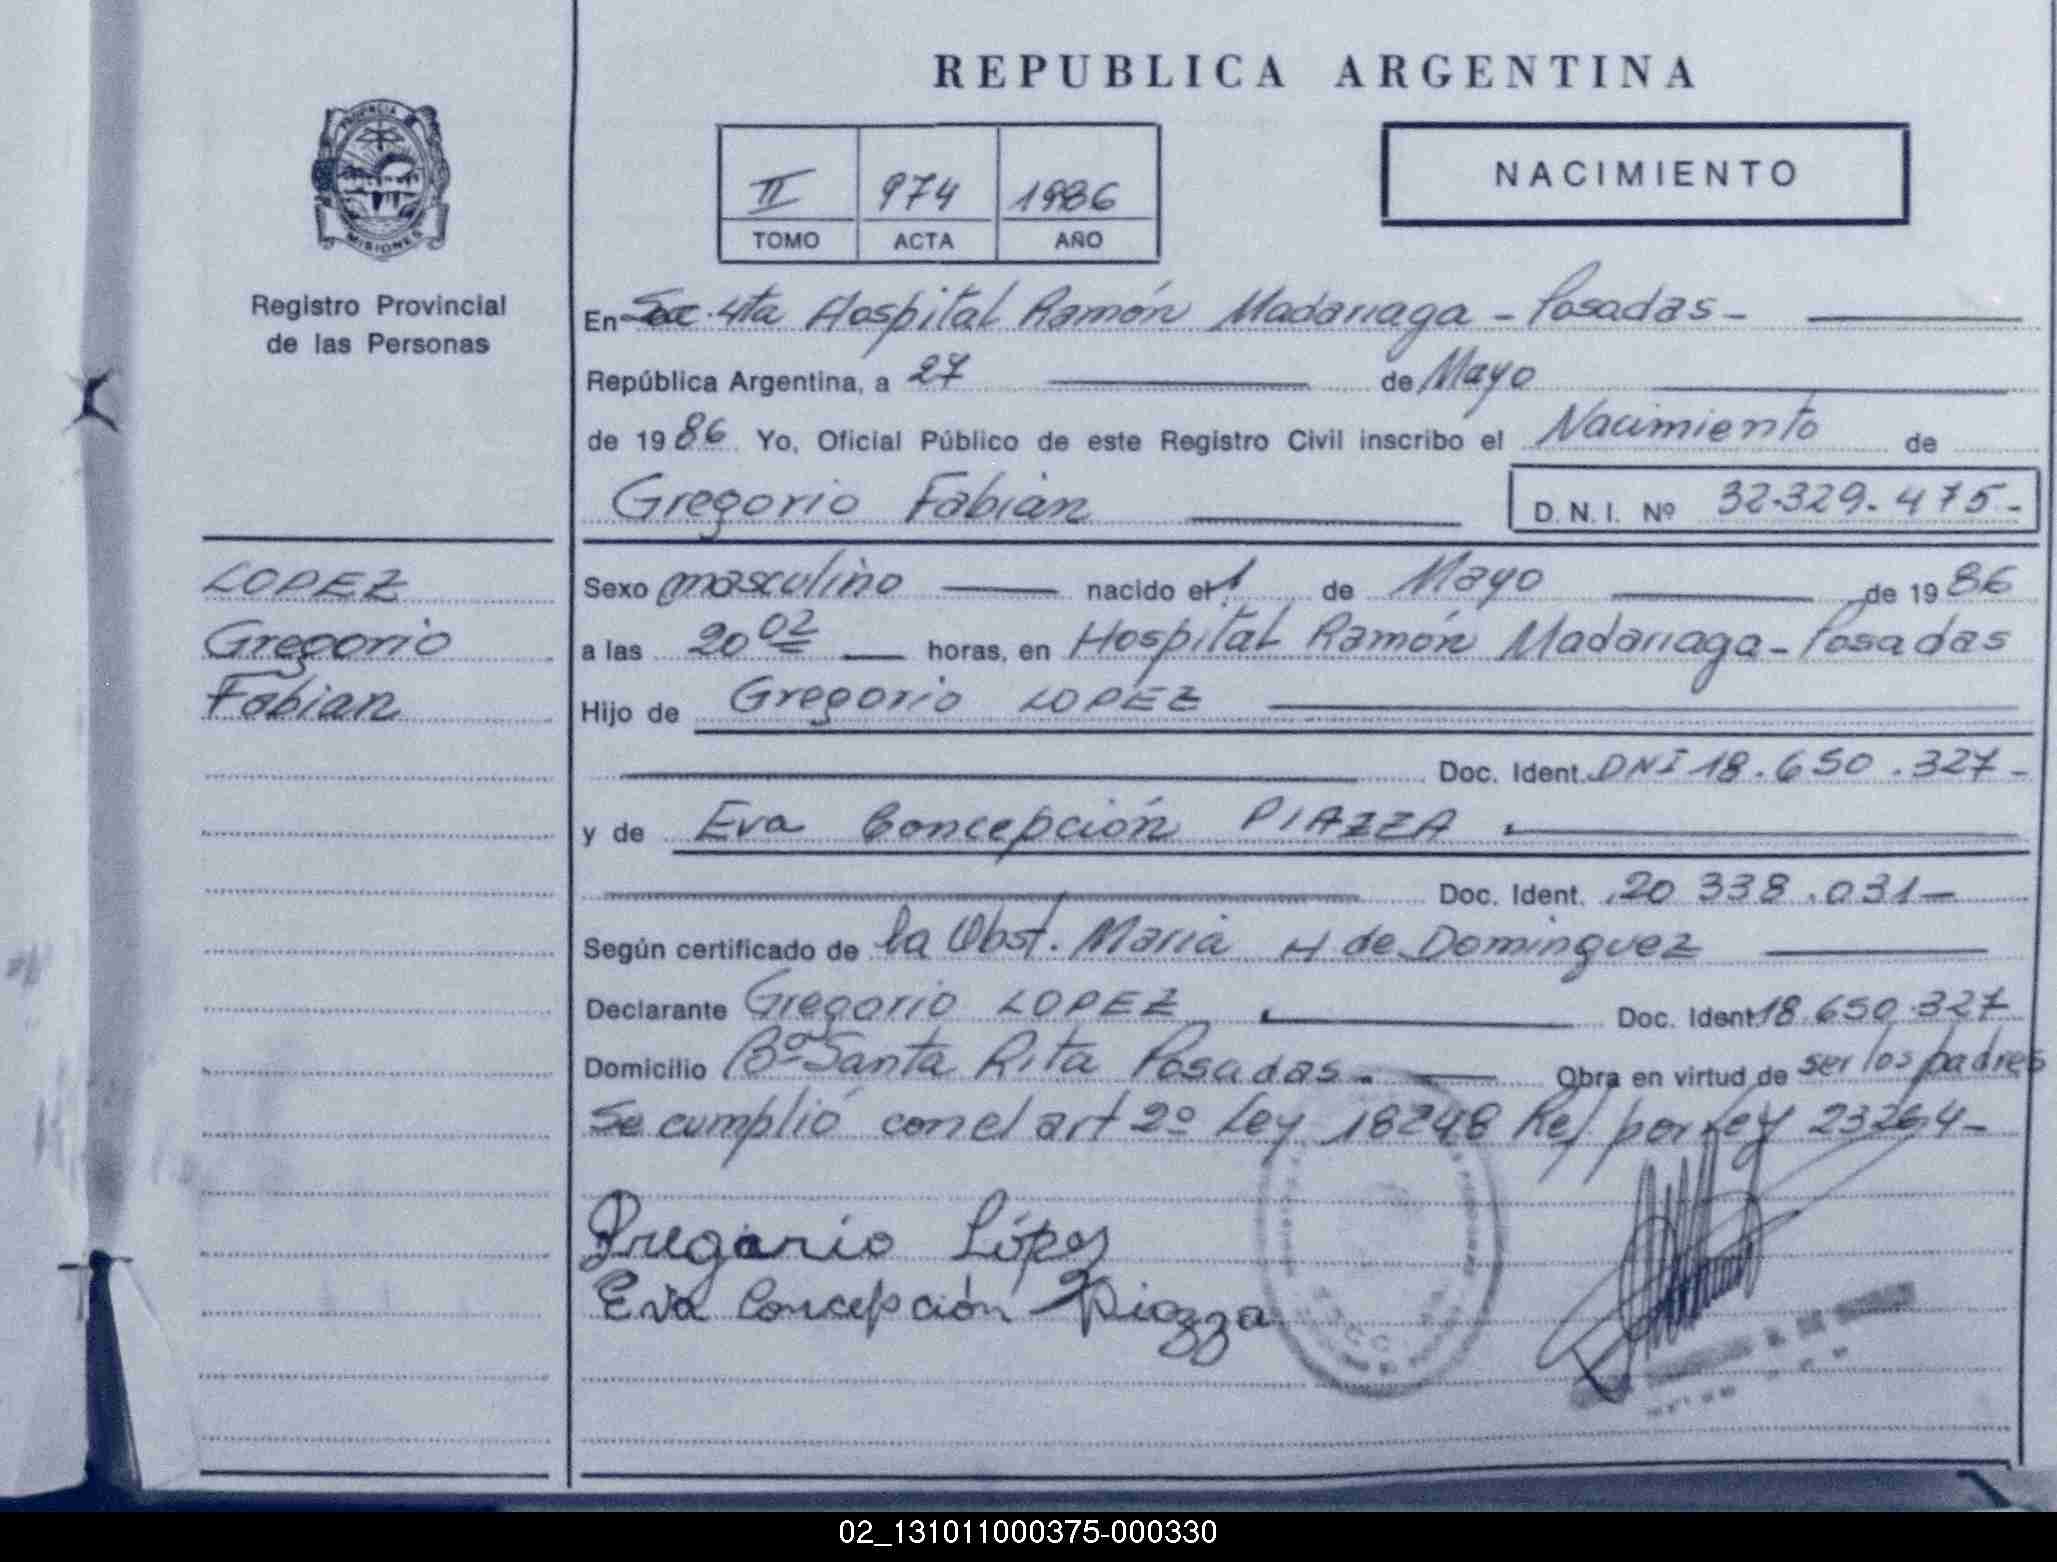 REPUBLICA ARGENTINA
PROVINCIA DE
MISIONES
Registro Provincial
de las Personas
II 974 1986
TOMO ACTA AÑO
NACIMIENTO
En Sec. 4ta Hospital Ramón Madariaga - Posadas -
República Argentina, a 27 de Mayo
de 1986 Yo, Oficial Público de este Registro Civil inscribo el Nacimiento de
Gregorio Fabian D.N.I. Nº 32.329.475.-
LOPEZ
Gregorio
Fabian
Sexo masculino nacido el 1 de Mayo de 1986
a las 20 02 horas, en Hospital Ramón Madariaga - Posadas
Hijo de Gregorio LOPEZ
Doc. Ident. DNI 18.650.327-
y de Eva Concepción PIAZZA
Doc. Ident. 20 338.031-
Según certificado de la Obst. Maria H de Dominguez
Declarante Gregorio LOPEZ Doc. Ident 18.650.327
Domicilio Bº Santa Rita Posadas.- Obra en virtud de ser los padres
Se cumplió con el art 2º Ley 18248 Ref por Ley 23264-
Gregorio López
Eva Concepción Piazza
02_131011000375-000330